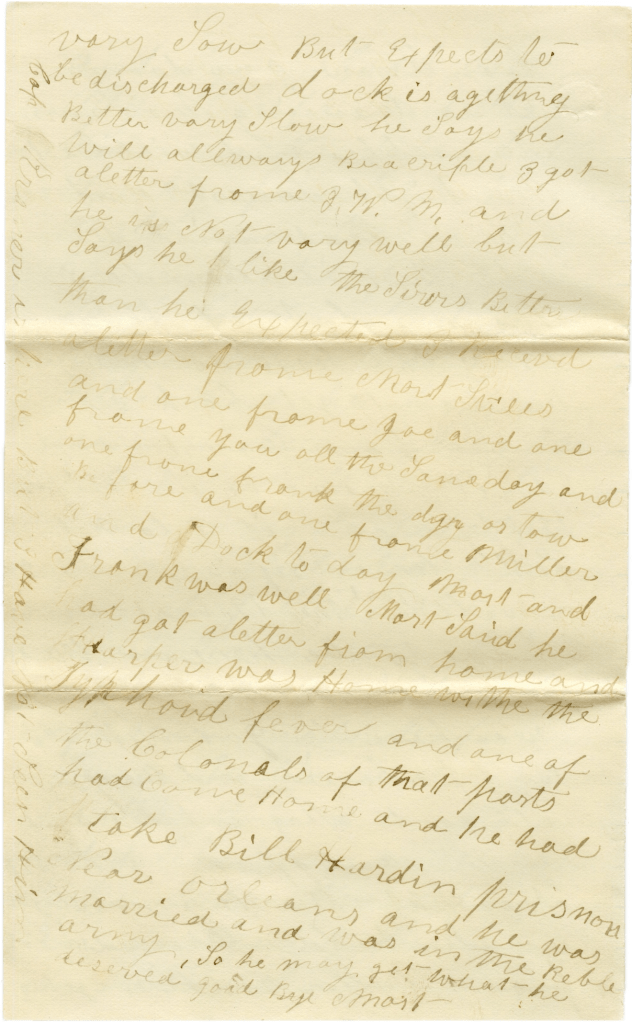 vary Low But Expects to
be discharged dock is agetting
Better vary Slow he Says he
will allways Be a criple I got
a letter frome J. W. M. and
he is Not vary well but
Says he like the Sirvis Better
than he Expected I Receved
a letter frome Mort Stiles
and one frome Joe and one
frome you all the Same day and
one frome frank the day or tow
Before and one frome Miller
and Dock to day Mort and
Frank was well Mort Said he
had got a letter from home and
Harper was Home withe the
Typhoid fever and one of
the Colonals of that parts
had Come Home and he had
take Bill Hardin prisnor
Near Orleans and he was
married and was in the Reble
army, So he may get what he
deserved good Bye Mort
Cap is here but I Have Not Seen Him